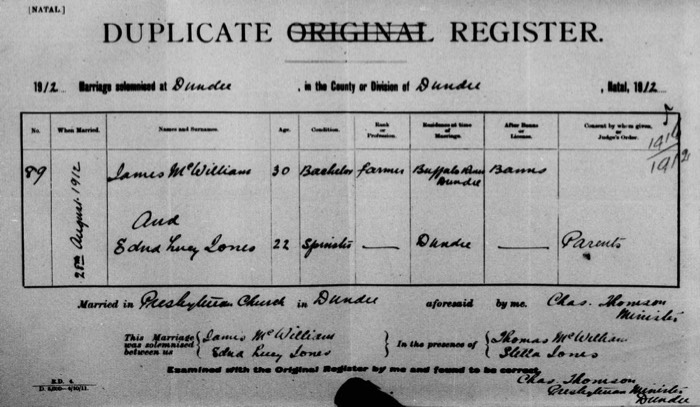 [NATAL.]
DUPLICATE ORIGINAL REGISTER.
1912 Marriage solemnised at Dundee, in the County or Division of Dundee, Natal, 1912
No. When Married. Names and Surnames. Age. Condition. Rank or Profession. Residence at time of Marriage. After Banns or License. Consent by whom given, or Judge's Order.
89 28th August 1912 James McWilliam 30 Bachelor farmer Buffalo River Dundee Banns
And
Edna Lucy Jones 22 Spinster — Dundee — Parents
1912
Married in Presbyterian Church in Dundee aforesaid by me. Chas. Thomson
Minister
This Marriage was solemnised between us { James McWilliam
Edna Lucy Jones } In the presence of { Thomas McWilliam
Stella Jones
Examined with the Original Register by me and found to be correct.
Chas. Thomson
Presbyterian Minister
Dundee